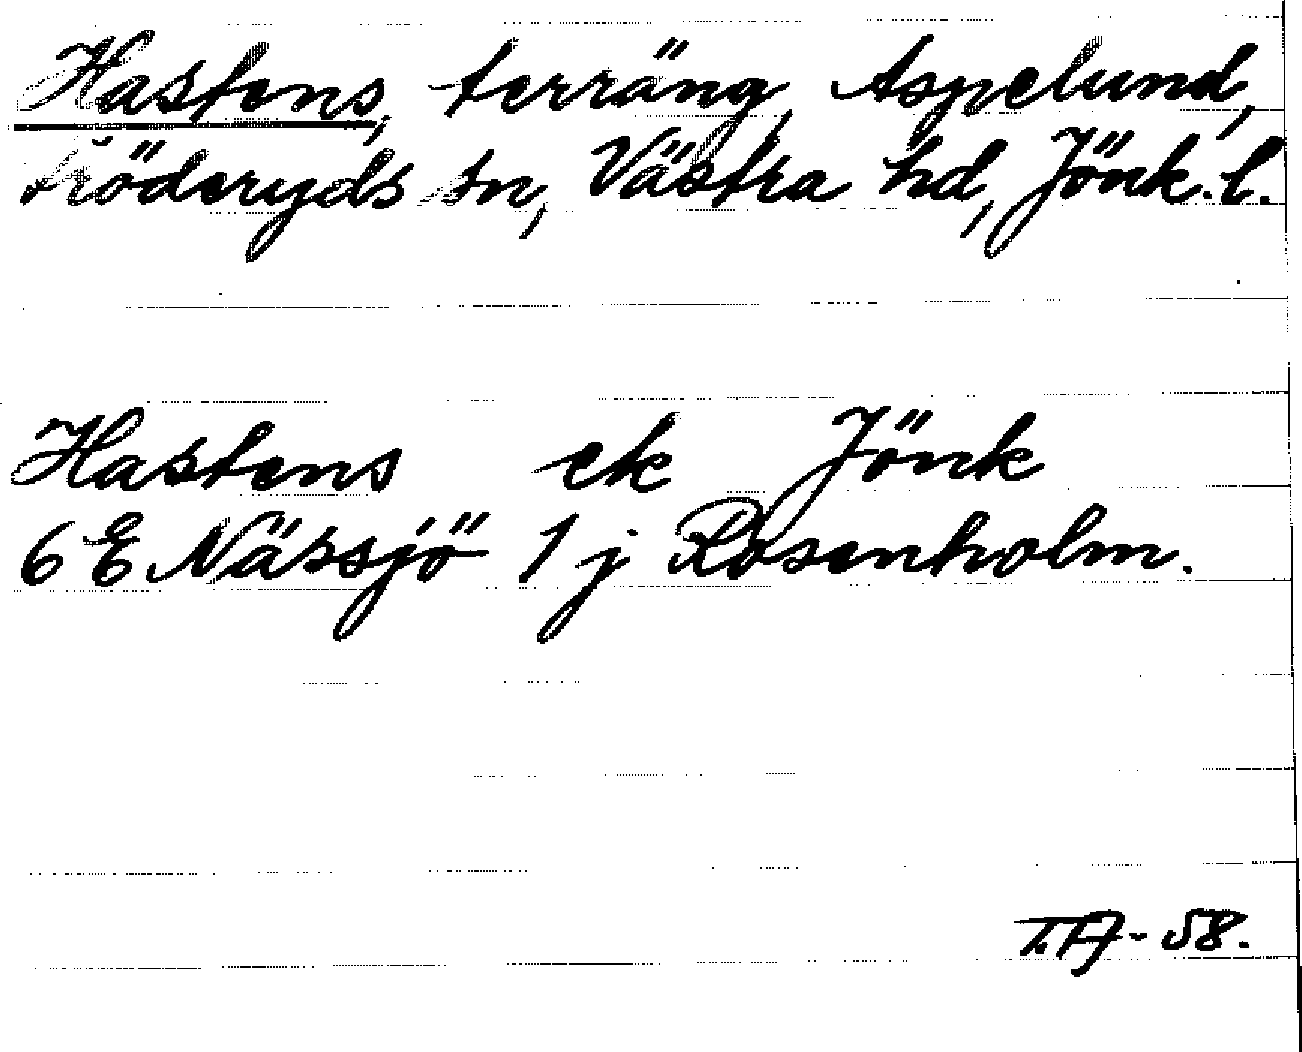 Hastens, terräng, Aspelund,
Bröderyds sn, Västra hd, Jönk. l.
Hastens ek Jönk
6 E Nässjö 1 j Rosenholm.
T.A-58.